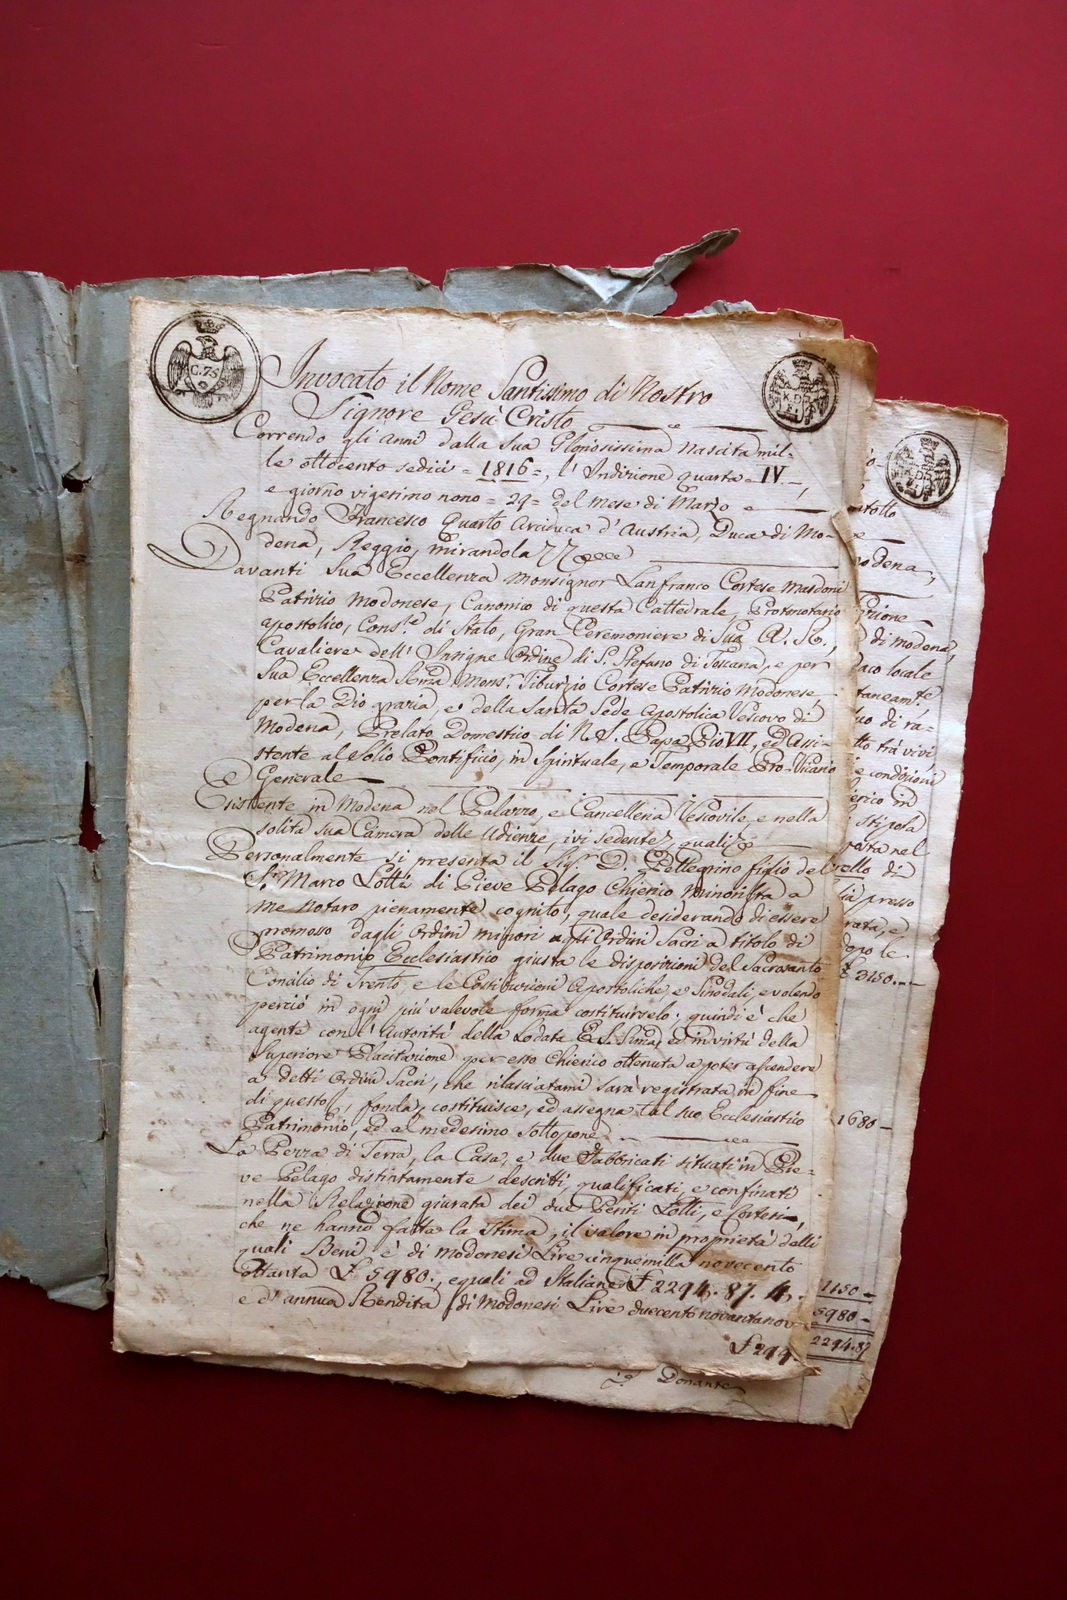 C.75
Invocato il Nome Santissimo di Nostro
Signore Gesù Cristo
Correndo gli anni dalla Sua Gloriosissima Nascita mil-
le ottocento sedici = 1816 =, l'Indizione quarta = IV. =,
e giorno vigesimo nono = 29 = del mese di Marzo e
Regnando Francesco Quarto Arciduca d'Austria, Duca di Mo-
dena, Reggio, Mirandola
Davanti Sua Eccellenza Monsignor Lanfranco Cortese Masdoni
Patrizio Modonese, Canonico di questa Cattedrale, Protonotario
apostolico, Cons.e di Stato, Gran Ceremoniere di Sua A. R.,
Cavaliere dell'Insigne Ordine di S. Stefano di Toscana, e per
Sua Eccellenza Rma Mons.r Tiburzio Cortese Patrizio Modonese
per la Dio grazia, e della Santa Sede Apostolica Vescovo di
Modena, Prelato Domestico di N. S. Papa Pio VII, ed Assi-
stente al Solio Pontificio, in Spirituale, e Temporale Pro-Vicario
Generale
Esistente in Modena nel Palazzo, e Cancelleria Vescovile e nella
solita sua Camera delle Udienze, ivi sedente
Personalmente si presenta il Sig.r D. Pellegrino figlio del
S.r Marco Lotti di Pieve Pelago Chierico Minorista a
me Notaro pienamente cognito, quale desiderando di essere
promosso dagli Ordini minori agli Ordini Sacri a titolo di
Patrimonio Ecclesiastico giusta le disposizioni del Sacrosanto
Concilio di Trento, e le Costituzioni Apostoliche, e Sinodali, e volendo
perciò in ogni più valevole forma costituirselo; quindi è che
agente con l'Autorità della Lodata E. S. Rma, ed in virtù della
Superiore Placitazione per esso Chierico ottenuta a poter ascendere
a detti Ordini Sacri, che rilasciatami sarà registrata in fine
di questo, fonda, costituisce, ed assegna al suo Ecclesiastico
Patrimonio, ed al medesimo sottopone
La Pezza di Terra, la Casa, e due Fabbricati situati in Pie-
ve Pelago distintamente descritti, qualificati, e confinati
nella Relazione giurata dei due Periti Lotti, e Cortesi,
che ne hanno fatta la Stima, il valore in proprietà delli
quali Beni è di Modonesi Lire cinquemilla novecento
ottanta £ 5980., equali ad Italiane £ 2294.87.4.
e d'annua Rendita di Modonesi Lire duecento novantanov
£ 299
totto
odena,
zione
di modena,
aco locale
taneam.te
uo di ra-
tto trà vivi
e condizioni
erico in
stipola
posta nel
rello di
lià presso
rata, e
dopo le
£ 3150.
1680
1150
5980
2294.87
Donante